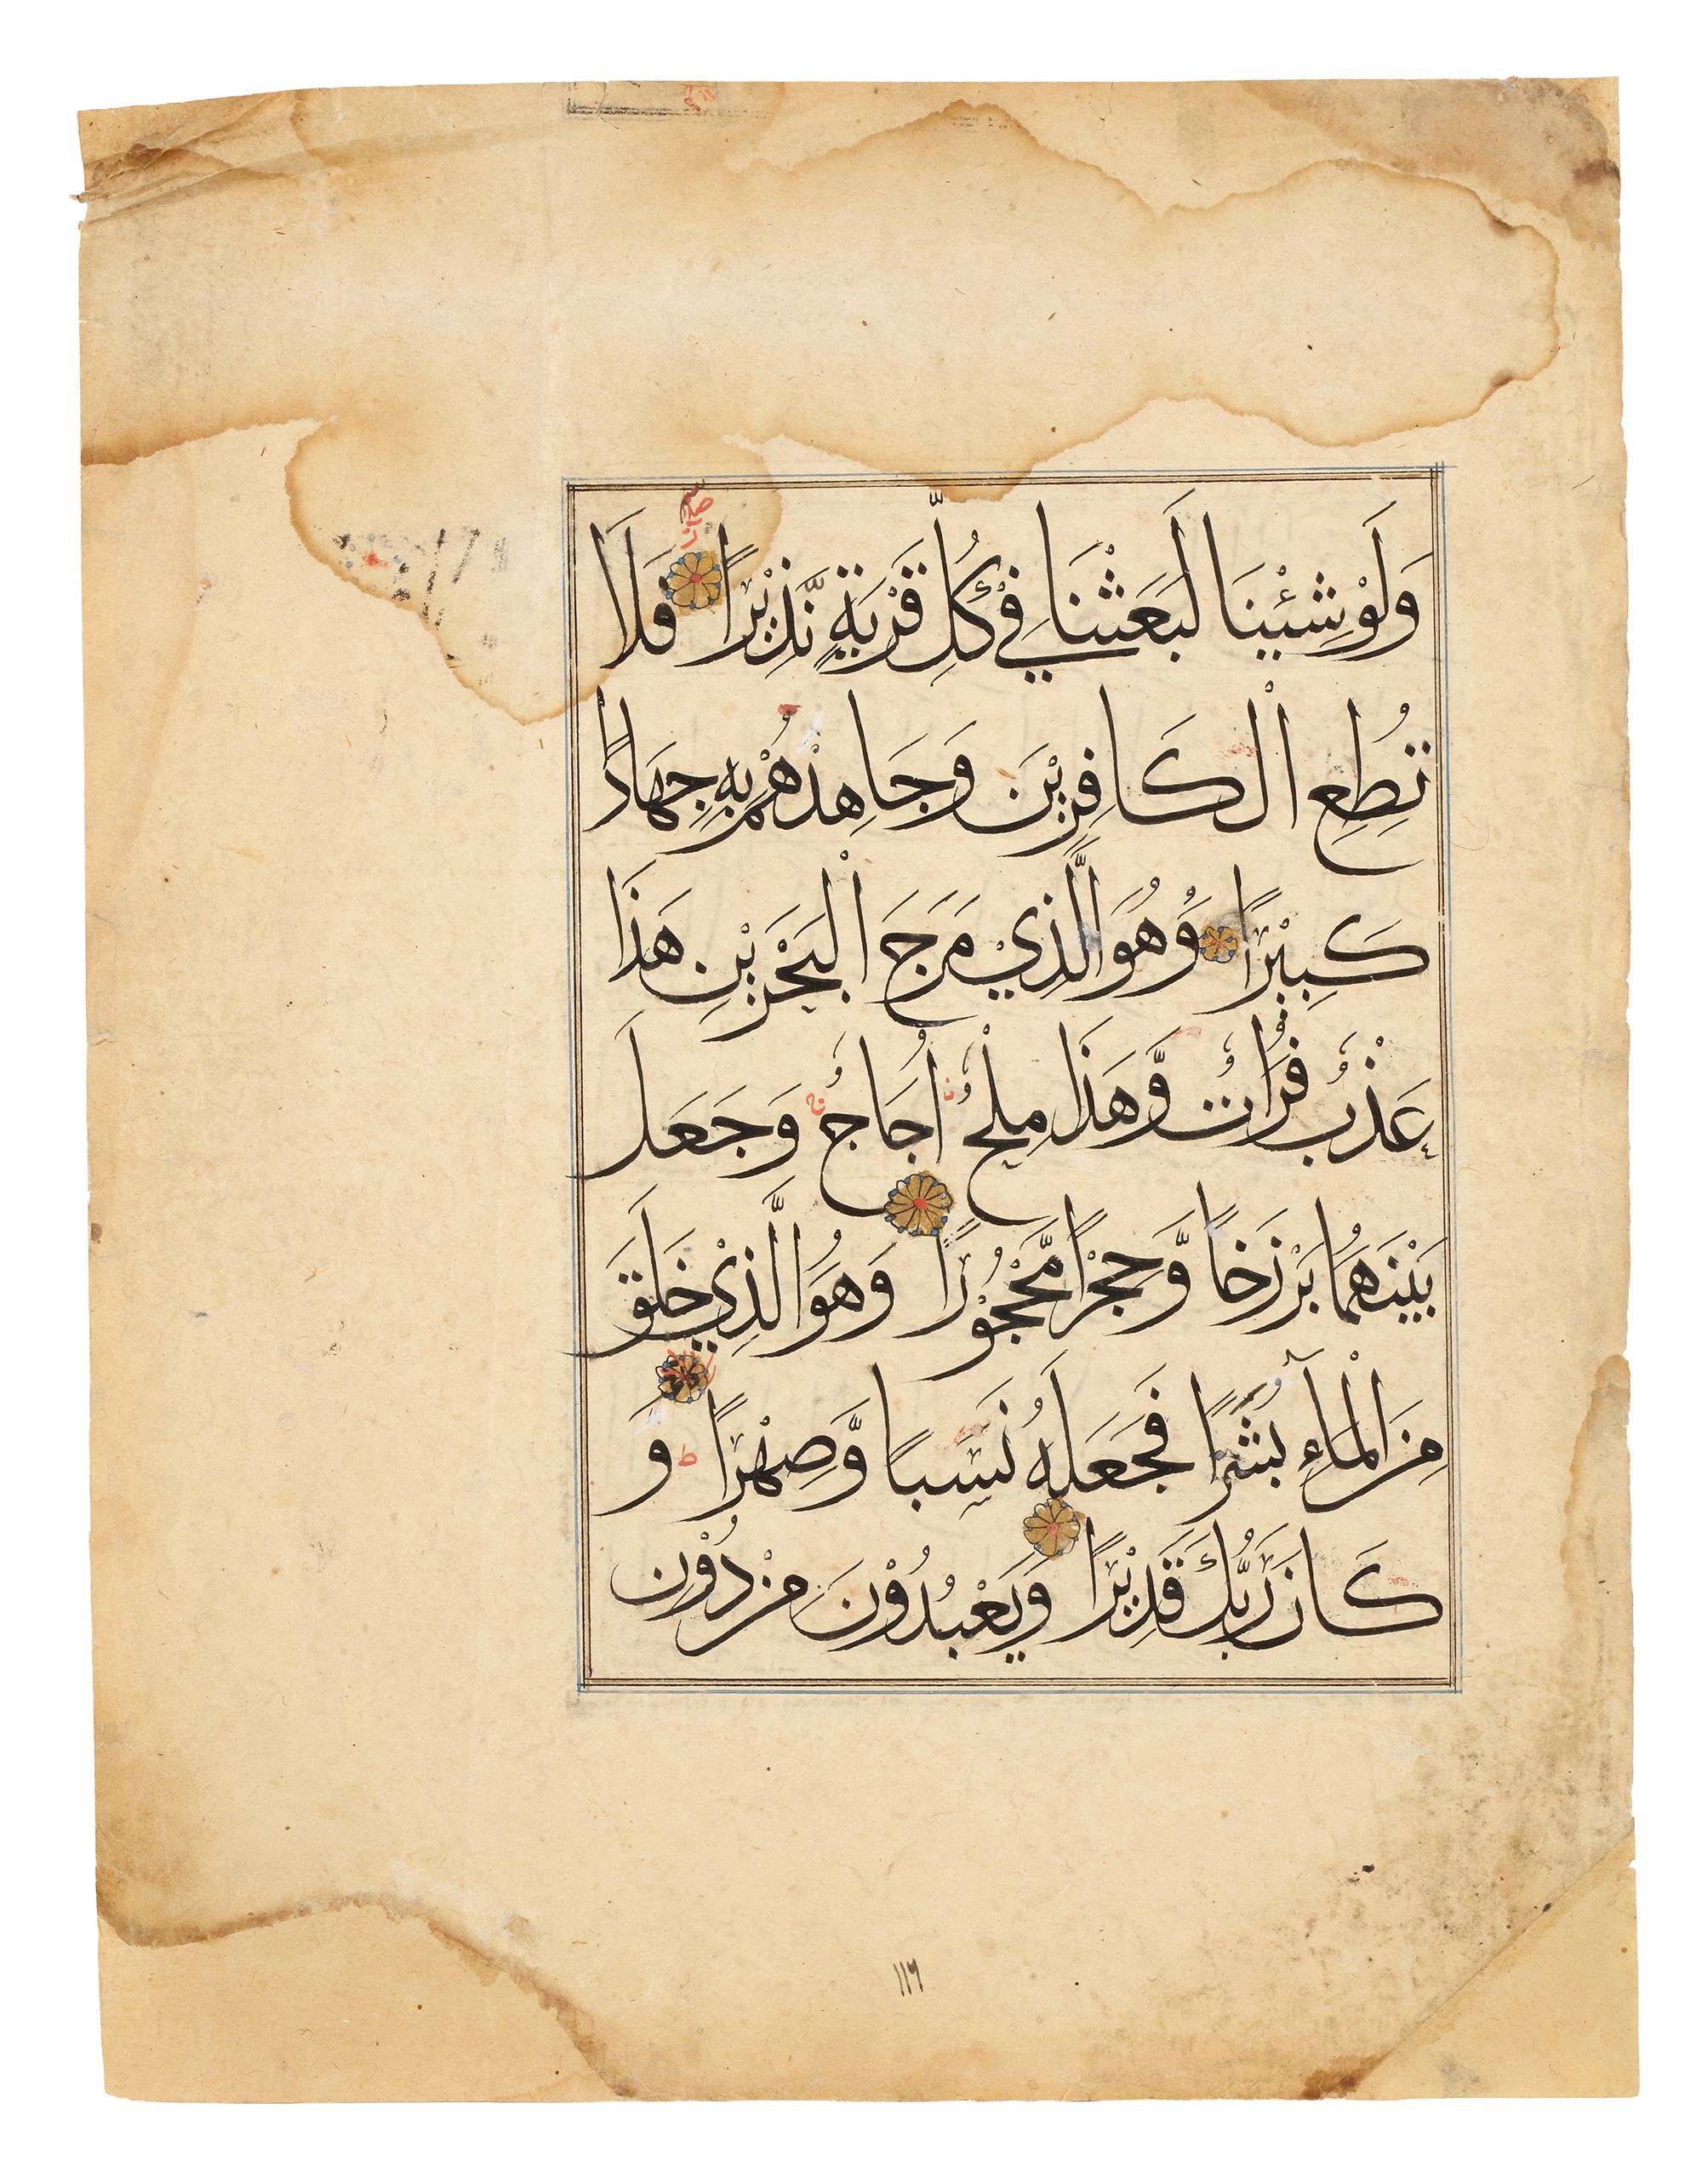 وَلَوْ شِئْنَا لَبَعَثْنَا فِيْ كُلِّ قَرْيَةٍ نَّذِيْرًا فَلَا
تُطِعِ الْكَافِرِيْنَ وَجَاهِدْهُمْ بِهٖ جِهَادًا
كَبِيْرًا وَهُوَ الَّذِيْ مَرَجَ الْبَحْرَيْنِ هَذَا
عَذْبٌ فُرَاتٌ وَّهَذَا مِلْحٌ أُجَاجٌ وَجَعَلَ
بَيْنَهُمَا بَرْزَخًا وَّحِجْرًا مَّحْجُوْرًا وَهُوَ الَّذِيْ خَلَقَ
مِنَ الْمَآءِ بَشَرًا فَجَعَلَهُ نَسَبًا وَّصِهْرًا ط وَ
كَانَ رَبُّكَ قَدِيْرًا وَيَعْبُدُوْنَ مِنْ دُوْنِ
١١٦